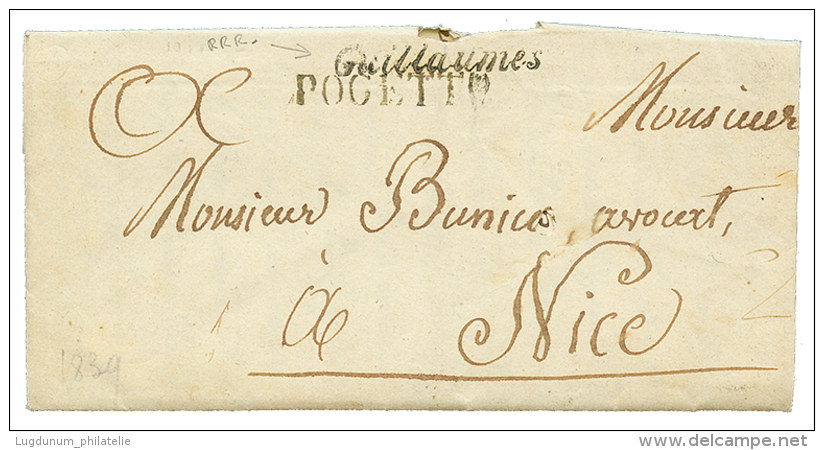 RRR.
Guillaumes
POGETTO
Monsieur
Monsieur Bunico, avocat,
à Nice
2
1839
Lugdunum_philatelie
www.delcampe.net